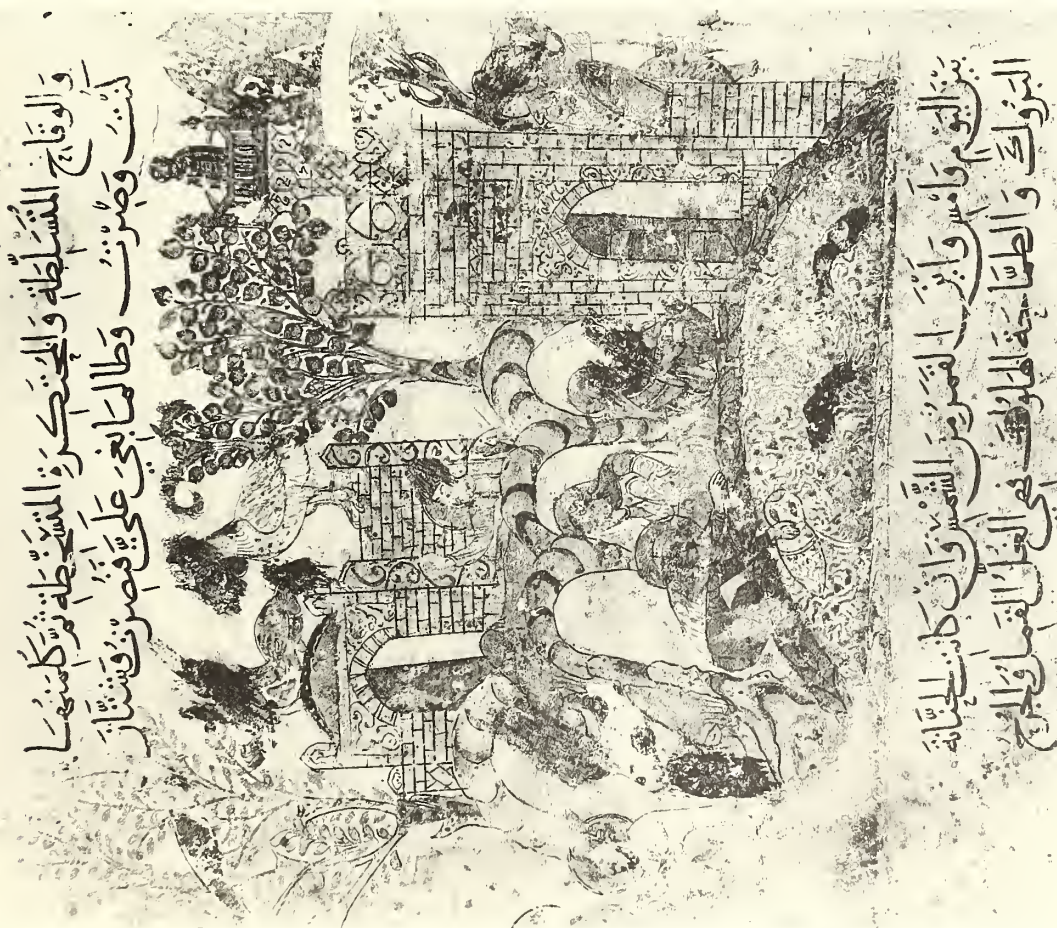 وَالوَقَاحُ المُتَسَلِّطَةُ وَالمُحْتَكِرَةُ المُتَسَخِّطَةُ ثُمَّ كَلِمَتُهَا
كُنْتُ وَصِرْتُ وَطَالَمَا بُغِيَ عَلَيَّ فَنُصِرْتُ وَشَتَّانَ
بَيْنَ اليَوْمِ وَأَمْسِ وَأَيْنَ القَمَرُ مِنَ الشَّمْسِ وَإِنْ كَانَتِ الحَنَّانَةَ
البَرُوكَ وَالطَّمَّاحَةَ الهَلُوكَ فَهِيَ الغُلُّ القَمِلُ وَالجُرْحُ